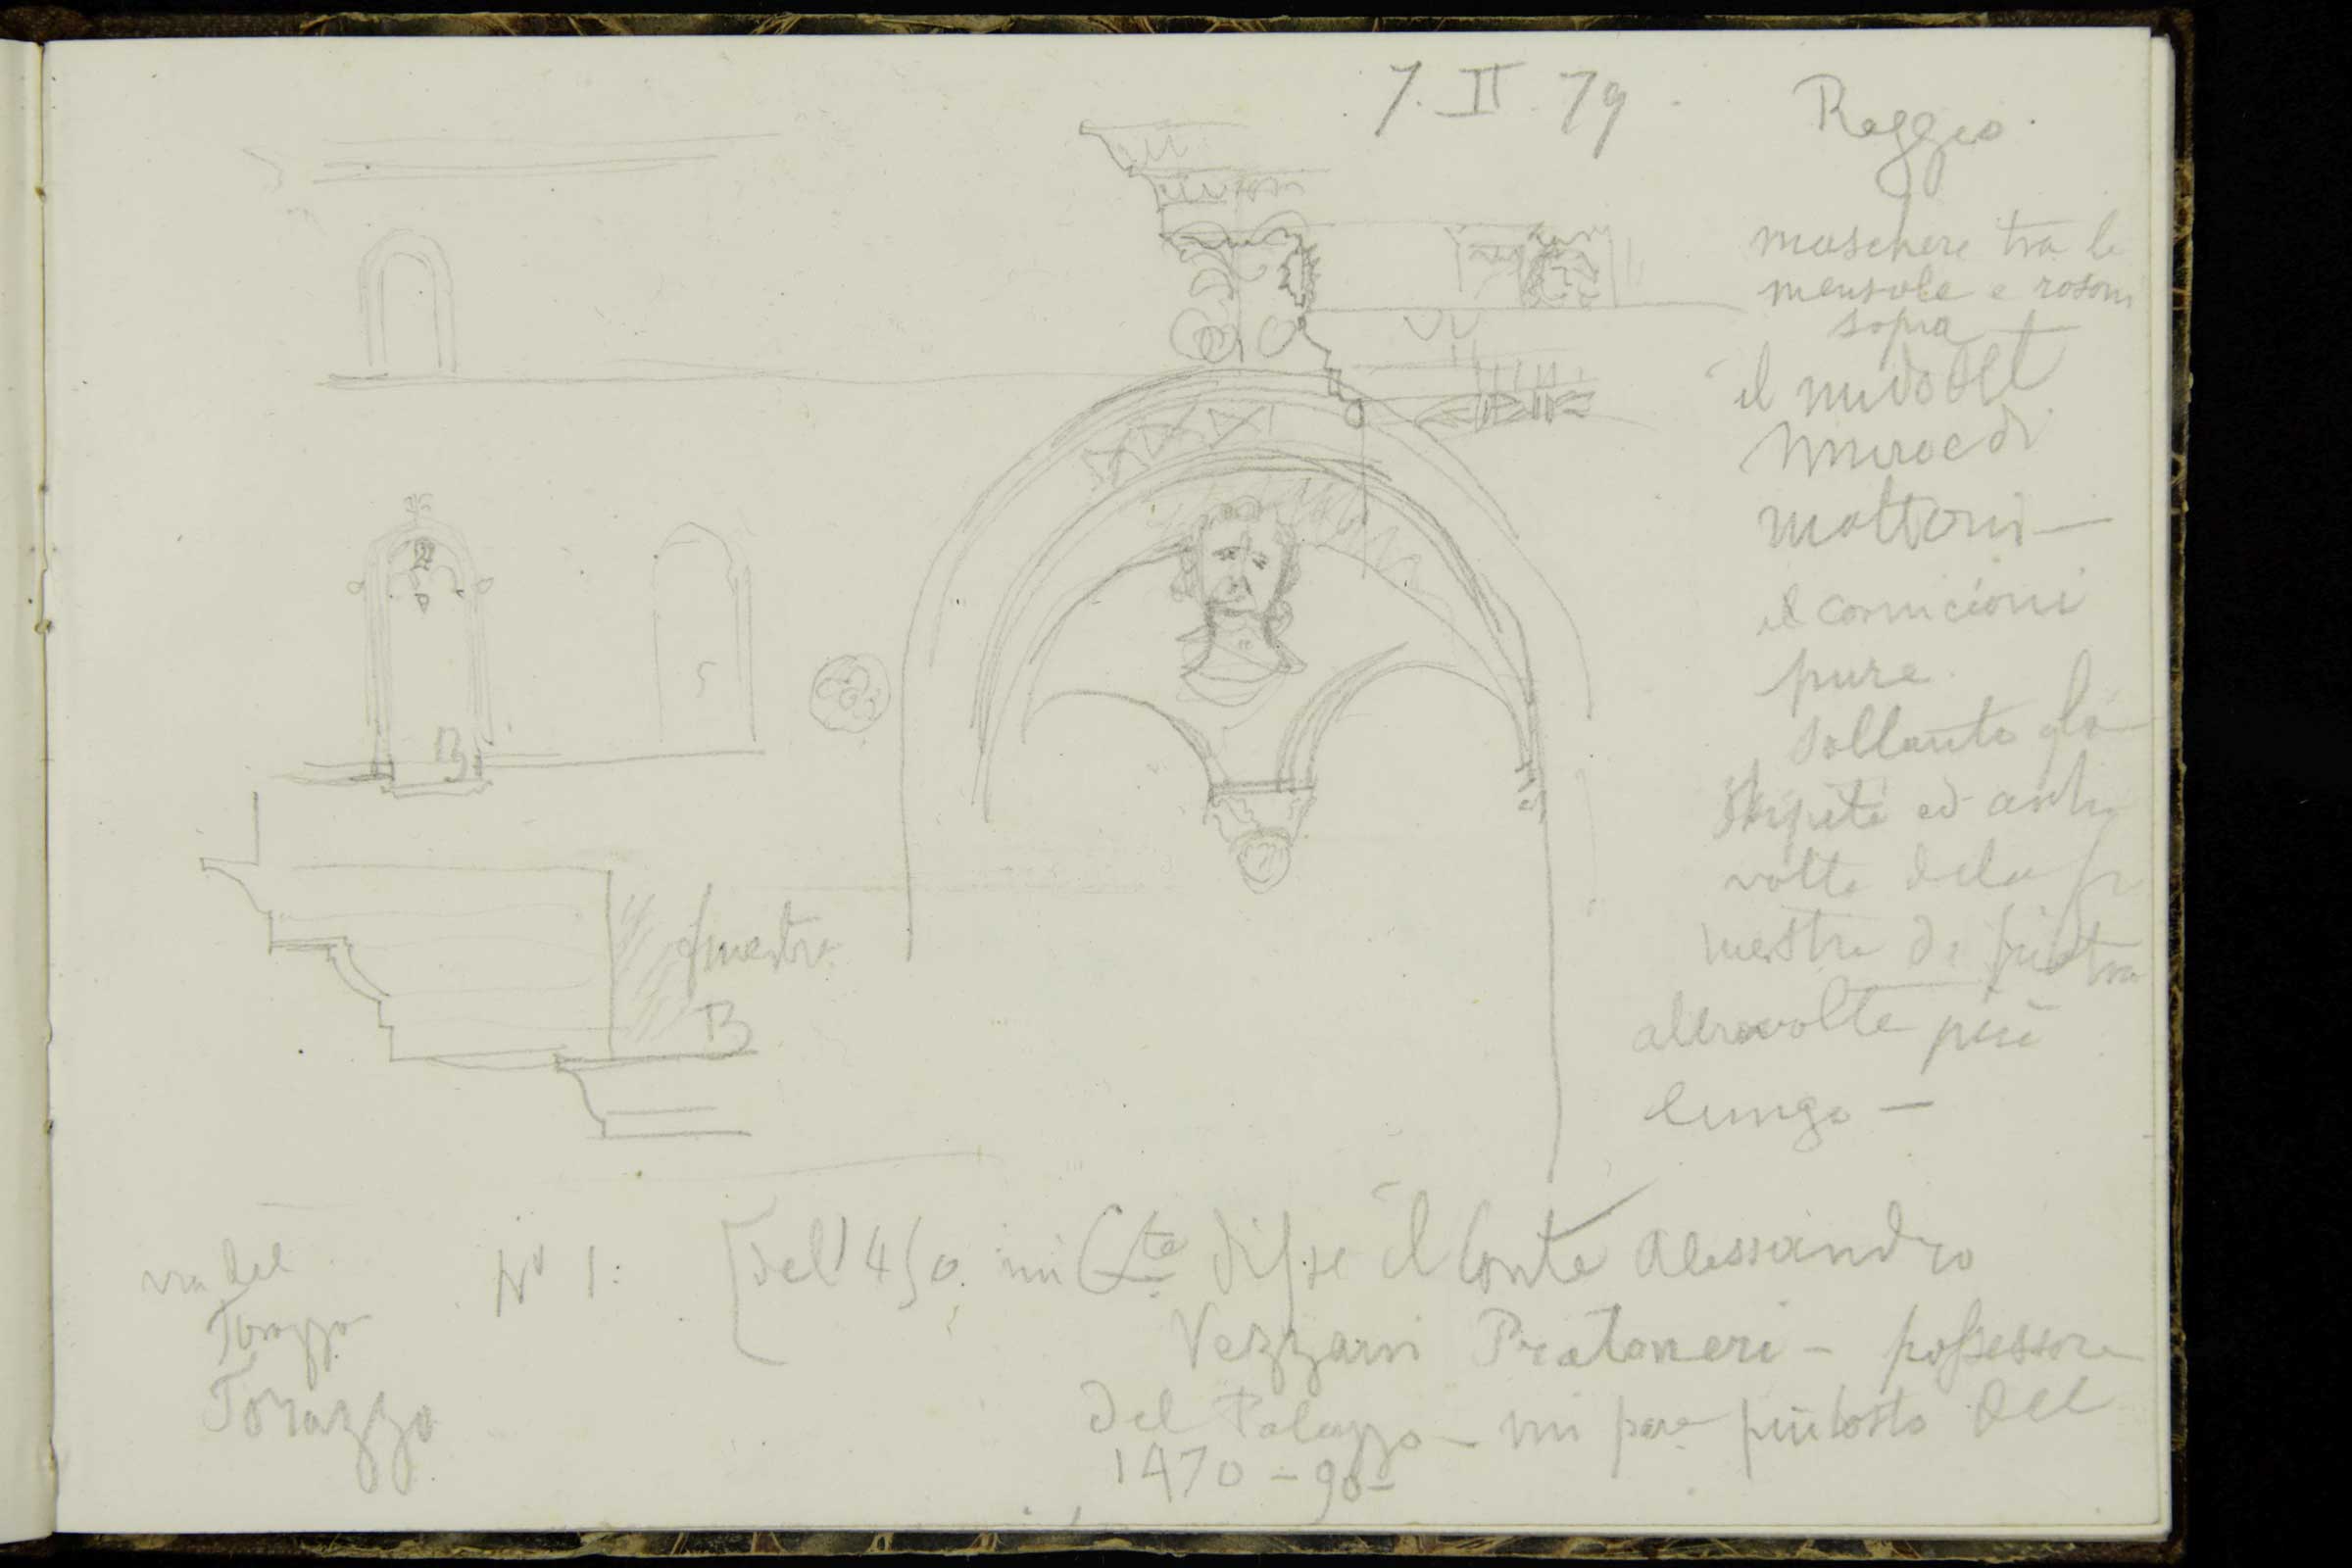 7. II. 79. Reggio.
maschere tra le
mensole e rosoni
sopra
il nudo del
muro e di
mattoni —
il cornicioni
pure.
soltanto gli
stipiti ed archi
volte dela fi
nestra di pietra
altravolta più
lungo —
finestra
B
B
5
via del
Torazzo
Torazzo
N° 1:
[del 450. mi Cte disse il Conte Alessandro
Vezzani Pratoneri — possessore
del Palazzo — mi pare piùtosto del
1470 – 90 –